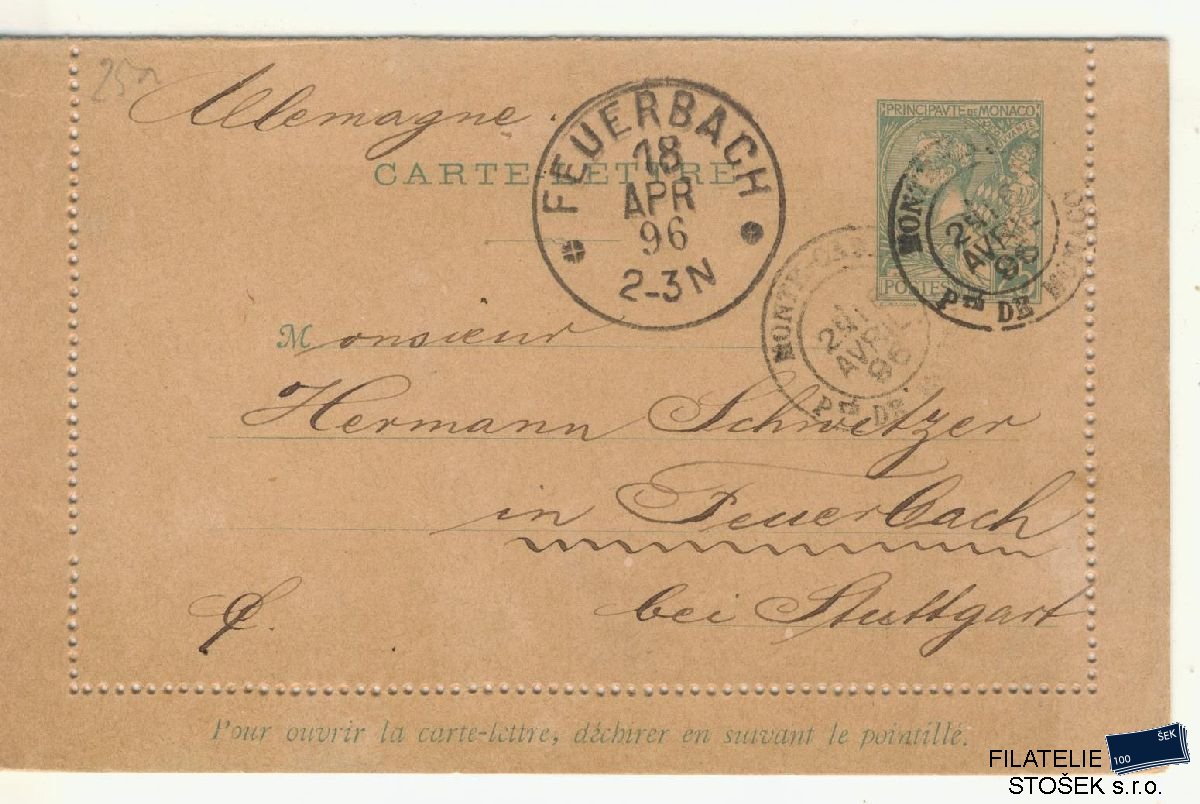 25n
Allemagne.
CARTE-LETTRE
FEUERBACH
18
APR
96
2-3N
PRINCIPAVTE DE MONACO
POSTES
MONTE-CAR
AVRIL
96
Pté DE MONACO
MONTE-CAR
AVRIL
96
Pté DE
Monsieur
Hermann Schweizer
in Feuerbach
bei Stuttgart
Pour ouvrir la carte-lettre, déchirer en suivant le pointillé.
FILATELIE
STOŠEK s.r.o.
100
ŠEK